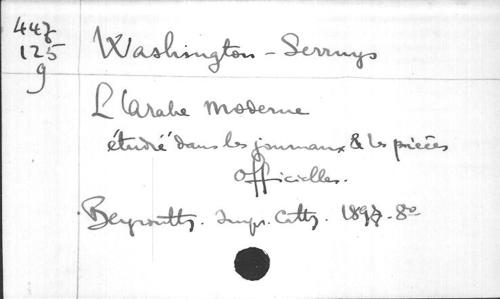 447
125
g
Washington-Serruys
L'Arabe moderne
étudié dans les journaux & les pièces
officielles.
Beyrouth. Impr. Cath. 1897. 8°